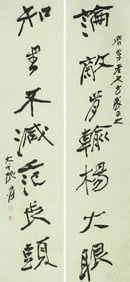 論敵肯輸楊大眼
知書不減范長頭
大千張爰